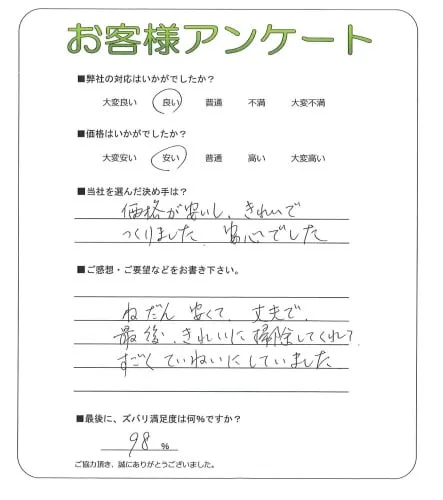 お客様アンケート
■弊社の対応はいかがでしたか?
大変良い 良い 普通 不満 大変不満
■価格はいかがでしたか?
大変安い 安い 普通 高い 大変高い
■当社を選んだ決め手は?
価格が安いし、きれいで
つくりました 安心でした
■ご感想・ご要望などをお書き下さい。
ねだん 安くて、丈夫で、
最後、きれいに掃除してくれて、
すごくていねいにしていました
■最後に、ズバリ満足度は何%ですか?
98 %
ご協力頂き、誠にありがとうございました。